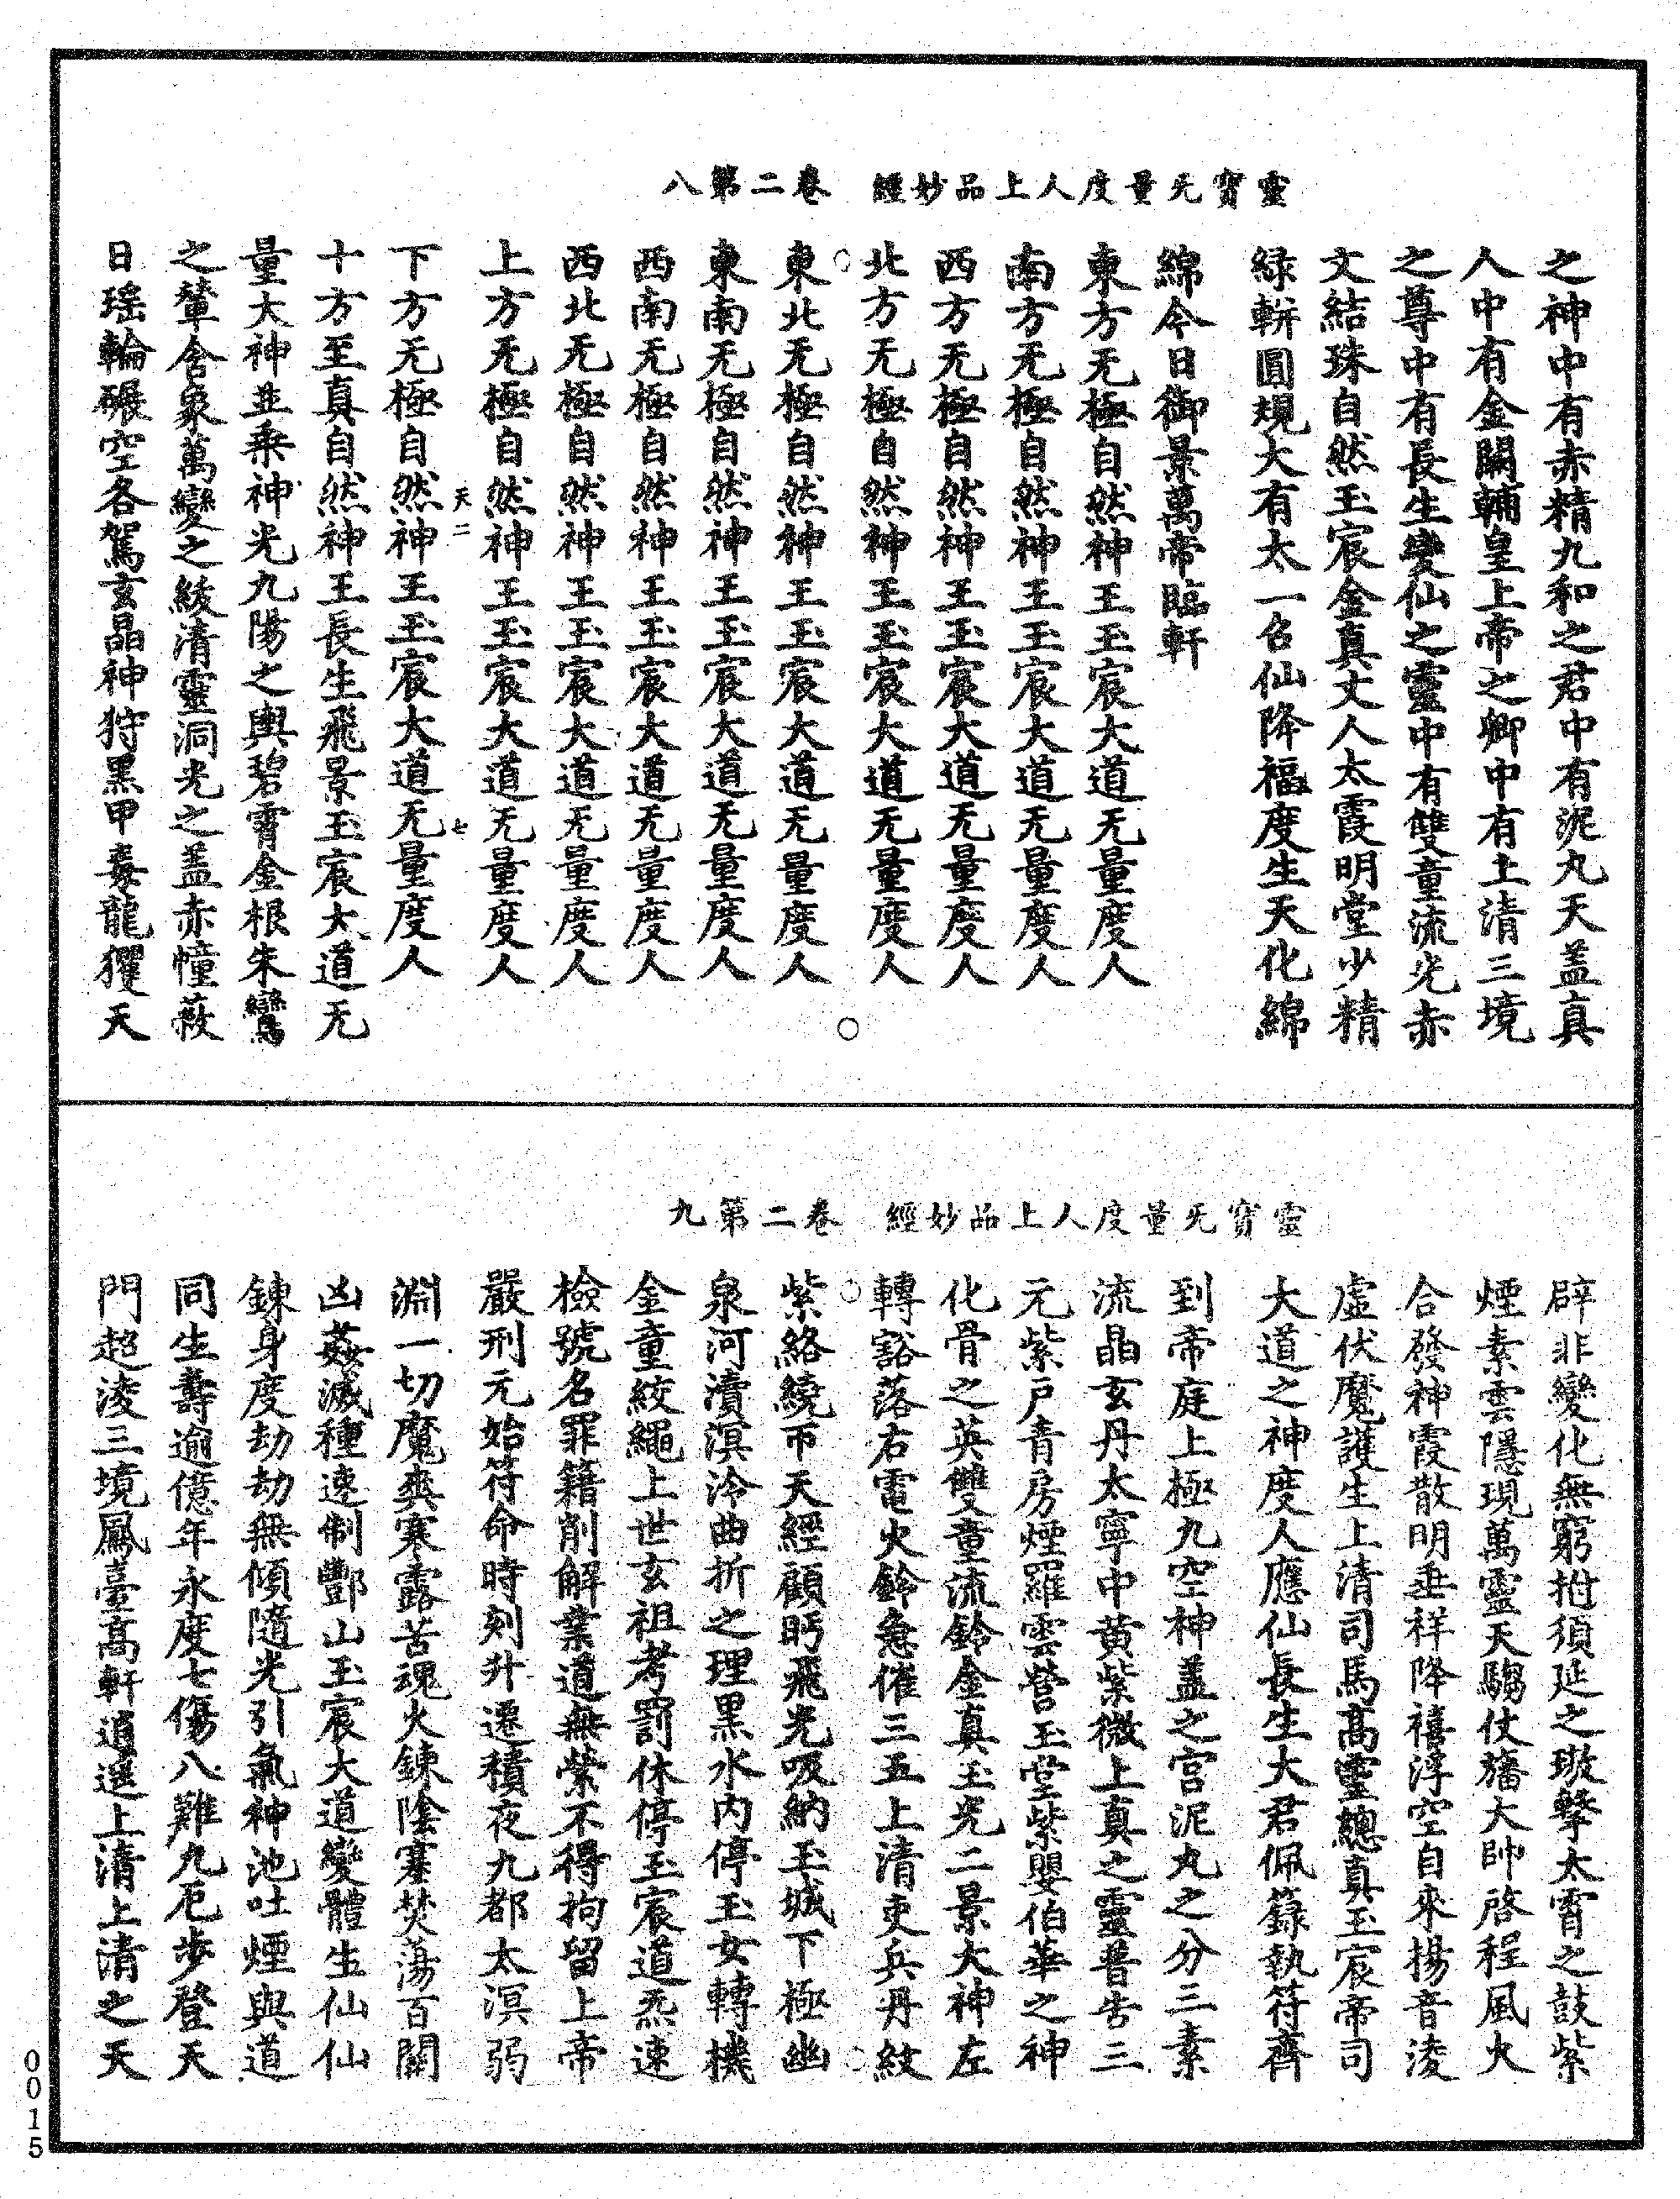 靈寶无量度人上品妙經　卷二第八
之神中有赤精九和之君中有泥丸天盖真
人中有金闕輔皇上帝之卿中有上清三境
之尊中有長生變仙之靈中有雙童流光赤
文結珠自然玉宸金真丈人太霞明堂少精
緑軿圓規大有太一召仙降福度生天化綿
綿今日御景萬帝臨軒
東方无極自然神王玉宸大道无量度人
南方无極自然神王玉宸大道无量度人
西方无極自然神王玉宸大道无量度人
北方无極自然神王玉宸大道无量度人
東北无極自然神王玉宸大道无量度人
東南无極自然神王玉宸大道无量度人
西南无極自然神王玉宸大道无量度人
西北无極自然神王玉宸大道无量度人
上方无極自然神王玉宸大道无量度人
天二　七
下方无極自然神王玉宸大道无量度人
十方至真自然神王長生飛景玉宸大道无
量大神並乘神光九陽之輿碧霄金根朱鸞
之輦含象萬變之綾清靈洞光之盖赤幢薇
日瑤輪碾空各駕玄晶神狩黑甲毒龍玃天
靈寶无量度人上品妙經　卷二第九
辟非變化無窮拊須延之璈擊太霄之鼓紫
煙素雲隱現萬靈天騶仗旛大帥啓程風火
合發神霞散明垂祥降禧浮空自來揚音淩
虛伏魔護生上清司馬高靈總真玉宸帝司
大道之神度人應仙長生大君佩籙執符齊
到帝庭上極九空神盖之宮泥丸之分三素
流晶玄丹太寧中黄紫微上真之靈普告三
元紫户青房煙羅雲營玉堂紫嬰伯華之神
化骨之英雙童流鈴金真玉光二景大神左
轉豁落右電火鈴急催三五上清吏兵丹紋
紫絡繞帀天經顧眄飛光吸納玉城下極幽
泉河瀆溟泠曲折之理黒水内停玉女轉機
金童紋繩上世玄祖考罰休停玉宸道炁速
檢號名罪籍削解業道無縈不得拘留上帝
嚴刑元始符命時刻升遷積夜九都太溟弱
淵一切魔爽寒露苦魂火鍊陰塞焚蕩百關
凶姦滅種速制酆山玉宸大道變體生仙仙
鍊身度劫劫無傾隨光引氣神池吐煙與道
同生壽逾億年永度七傷八難九厄步登天
門超淩三境鳳臺高軒逍遥上清上清之天
0015